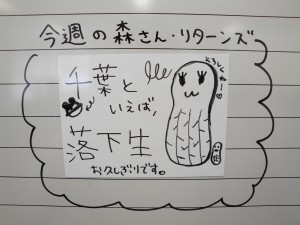 今週の森さん・リターンズ
千葉と
いえば,
落下生
お久しぶりです。